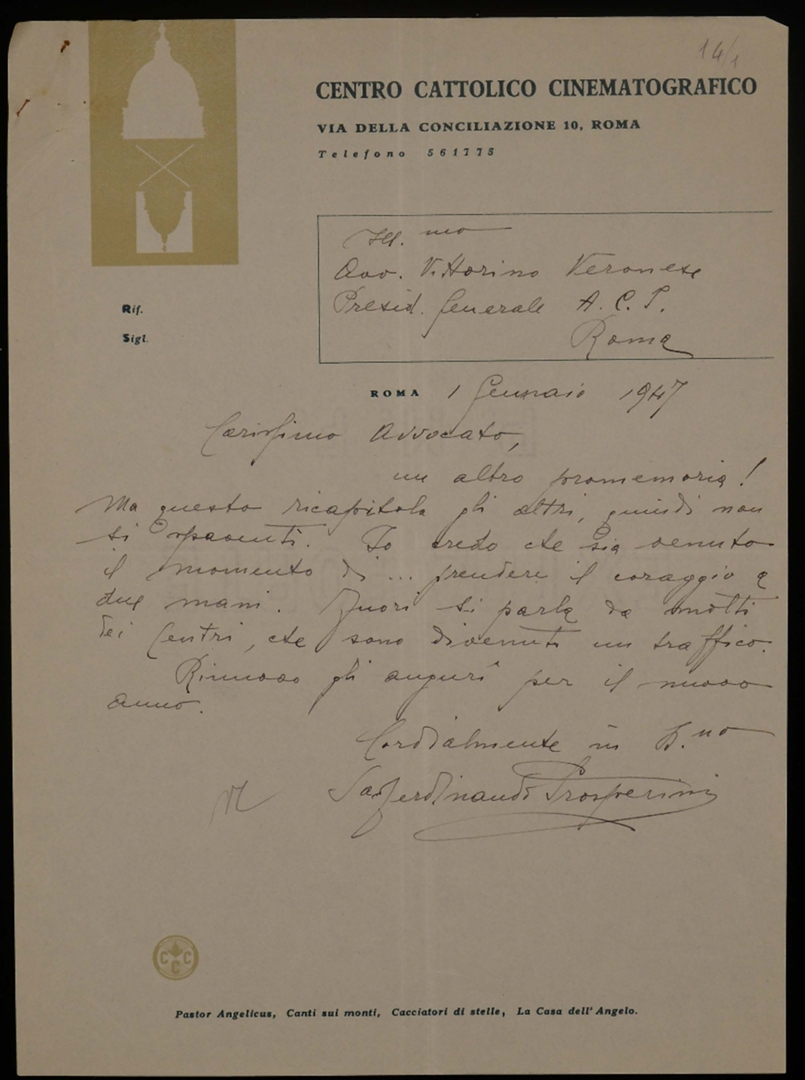 14/1
CENTRO CATTOLICO CINEMATOGRAFICO
VIA DELLA CONCILIAZIONE 10, ROMA
Telefono 561775
Ill.mo
Avv. Vittorino Veronese
Presid. Generale A. C. I.
Roma
Rif.
Sigl.
ROMA 1 Gennaio 1947
Carissimo Avvocato,
un altro promemoria!
Ma questo ricapitola gli altri, quindi non
si spaventi. Io credo che sia venuto
il momento di ... prendere il coraggio a
due mani. Fuori si parla da molti
dei Centri, che sono divenuti un traffico.
Rinnovo gli auguri per il nuovo
anno.
Cordialmente in D.no
Sac. Ferdinando Prosperini
CCC
Pastor Angelicus, Canti sui monti, Cacciatori di stelle, La Casa dell'Angelo.